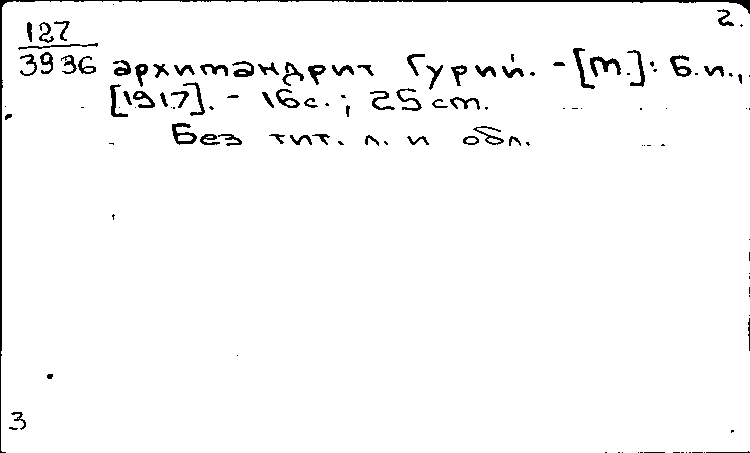 2.
127
3936 архимандрит Гурий. - [М.]: Б.и.,
[1917]. - 16 с.; 25 см.
Без тит. л. и обл.
3